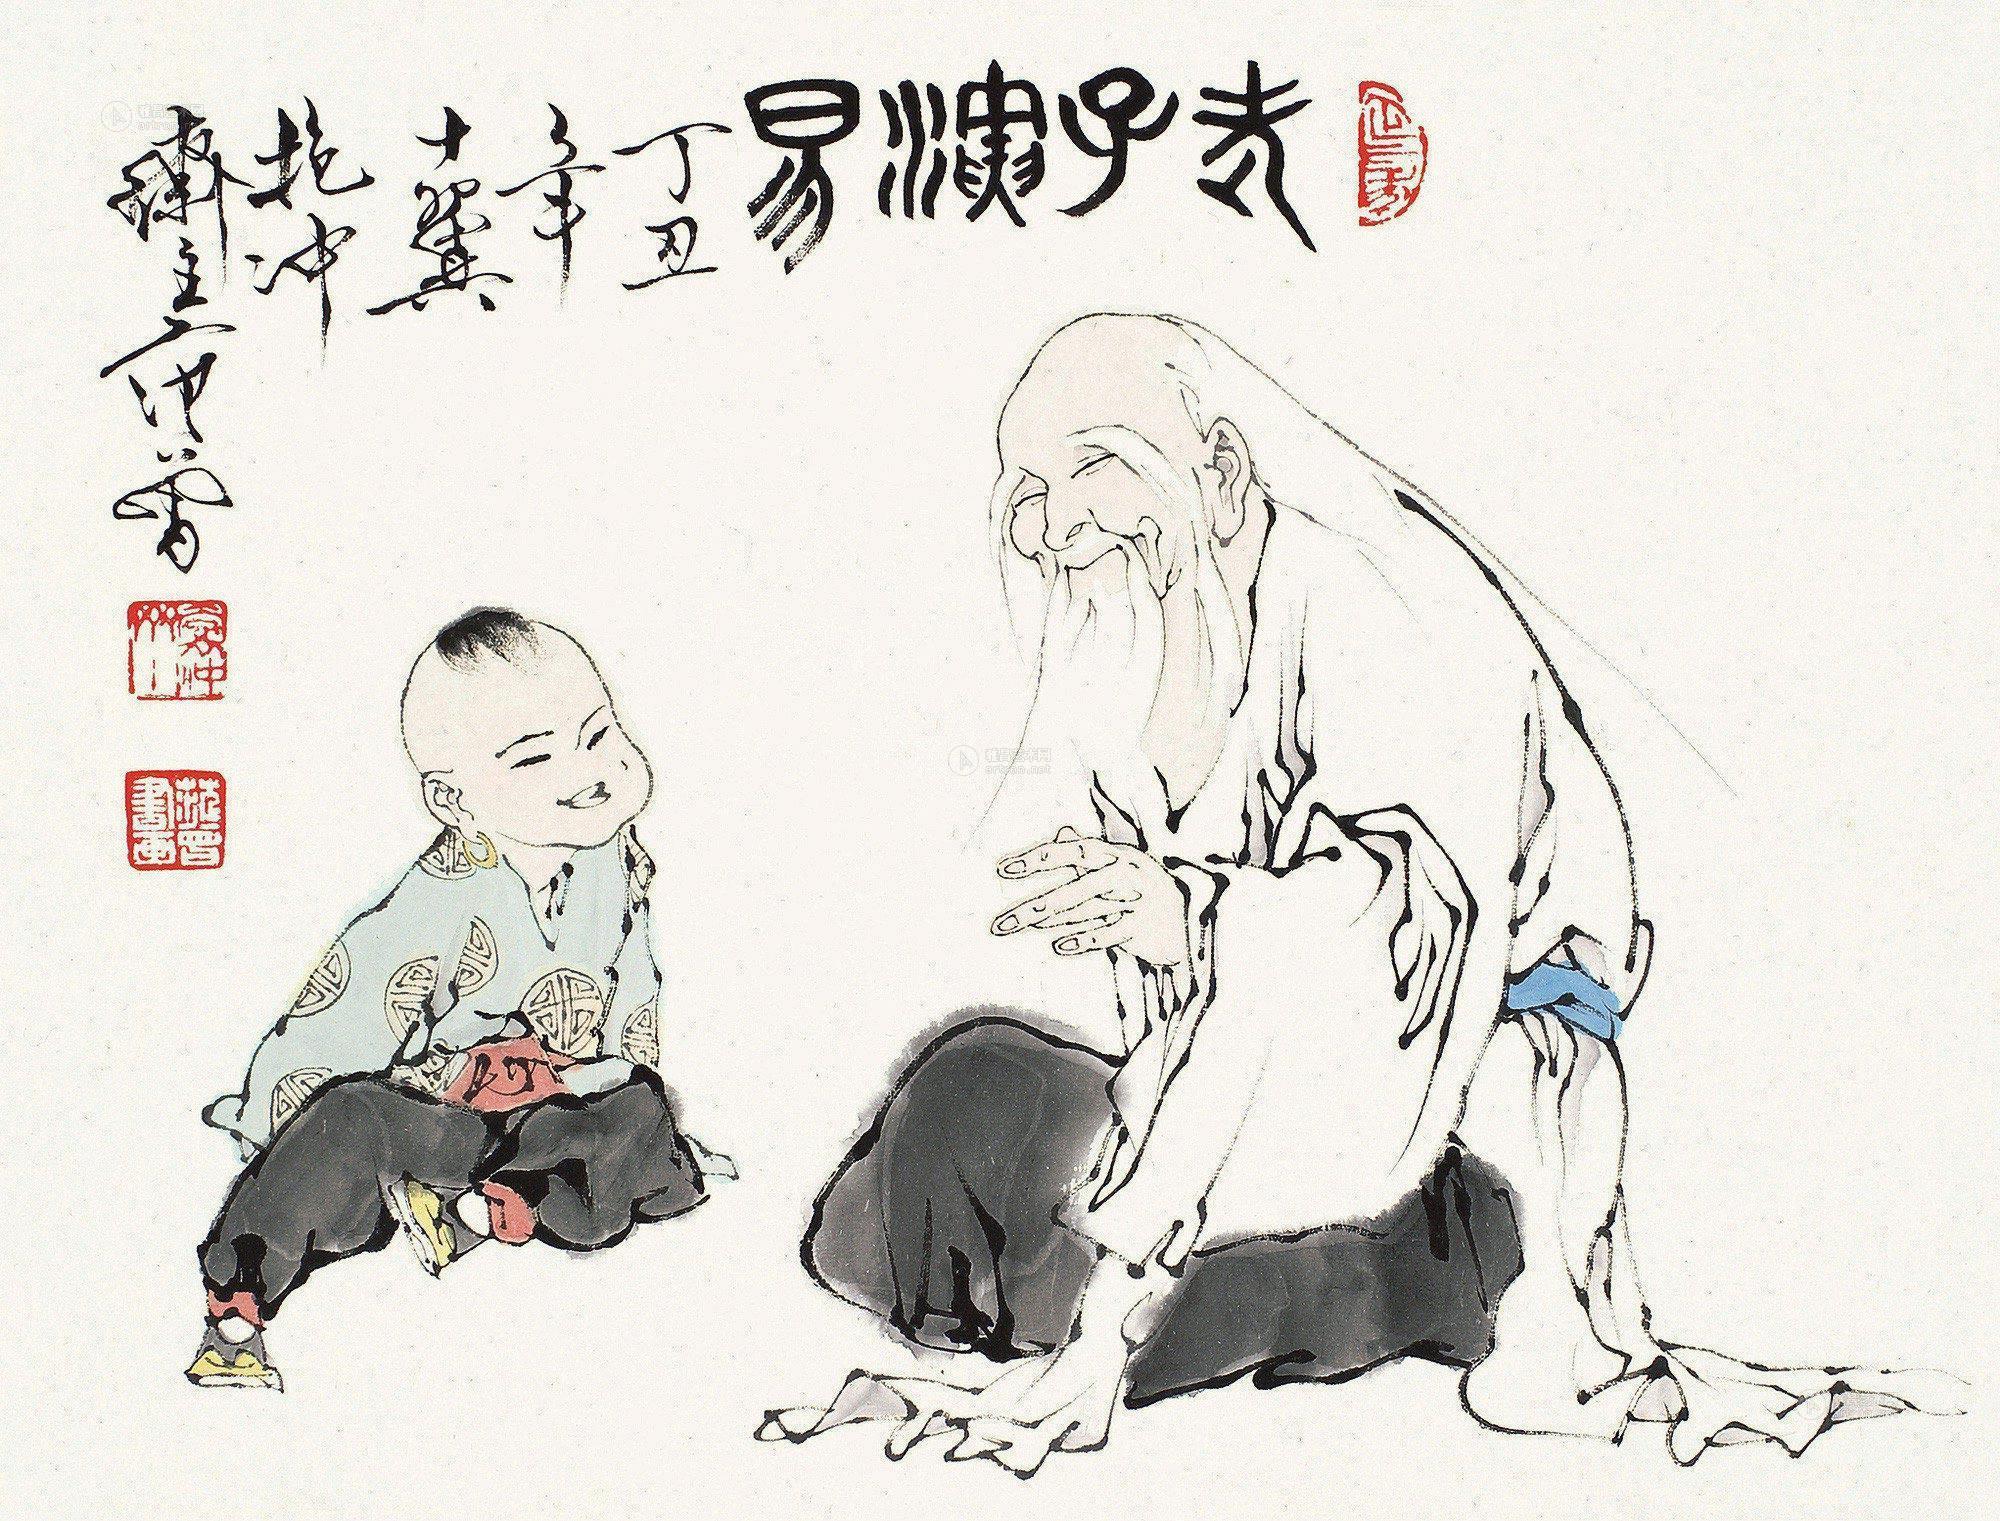 老子演易
丁丑
年
十翼
抱冲
齋主范曾